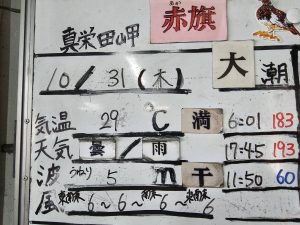 真栄田岬
赤旗
10/31(木)
大潮
気温 29 C 満 6:01 183
天気 曇/雨 17:45 193
波 うねり 5 m 干 11:50 60
風 6~6~6~6